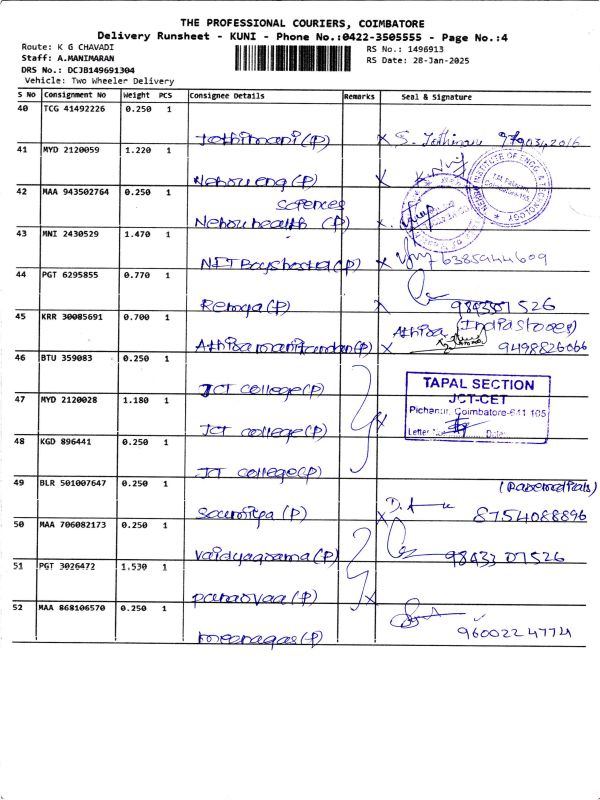 THE PROFESSIONAL COURIERS, COIMBATORE
Delivery Runsheet - KUNI - Phone No.:0422-3505555 - Page No.:4
Route: K G CHAVADI RS No.: 1496913
Staff: A.MANIMARAN RS Date: 28-Jan-2025
DRS No.: DCJB149691304
Vehicle: Two Wheeler Delivery
S No Consignment No Weight PCS Consignee Details Remarks Seal & Signature
40 TCG 41492226 0.250 1
Jothimani (P) x S. Jothimani 9790342016
41 MYD 2120059 1.220 1
Nehru eng (P) x
42 MAA 943502764 0.250 1
Sciences
Nehru health (P) x
43 MNI 2430529 1.470 1
NIT Boys hostel (P) x 6385944609
44 PGT 6295855 0.770 1
Remya (P) x
45 KRR 30085691 0.700 1
(India stores)
Athiba manikandan (P) x 9498826066
46 BTU 359083 0.250 1
JCT college (P)
TAPAL SECTION
JCT-CET
Pichanur, Coimbatore-641 105
47 MYD 2120028 1.180 1
x
JCT college (P)
48 KGD 896441 0.250 1
JCT college (P)
49 BLR 501007647 0.250 1
(P) x 8754088896
50 MAA 706082173 0.250 1
Vaidyagrama (P) 98433 07526
51 PGT 3026472 1.530 1
(P) x
52 MAA 868106570 0.250 1
(P) 96002 24774